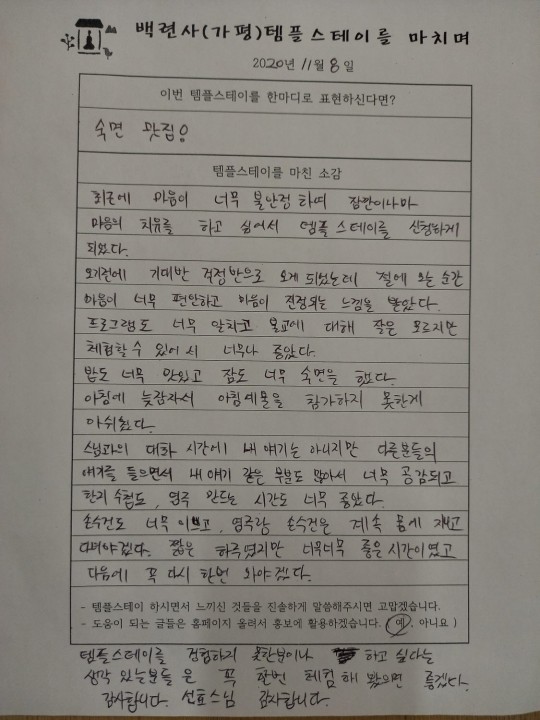 백련사(가평)템플스테이를 마치며
2020년 11월 8일
이번 템플스테이를 한마디로 표현하신다면?
숙면 맛집!
템플스테이를 마친 소감
최근에 마음이 너무 불난정 하여 잠깐이나마
마음의 치유를 하고 싶어서 템플스테이를 신청하게
되었다.
오기전에 기대반 걱정반으로 오게 되었는데 절에 오는 순간
마음이 너무 편안하고 마음이 진정되는 느낌을 받았다.
프로그램도 너무 알차고 불교에 대해 잘은 모르지만
체험할 수 있어서 너무나 좋았다.
밥도 너무 맛있고 잠도 너무 숙면을 했다.
아침에 늦잠자서 아침예불을 참가하지 못한게
아쉬웠다.
스님과의 대화 시간에 내 얘기는 아니지만 다른분들의
얘기를 들으면서 내 얘기 같은 부분도 많아서 너무 공감되고
한지 수첩도, 염주 만드는 시간도 너무 좋았다.
손수건도 너무 이쁘고, 염주랑 손수건은 계속 몸에 지니고
다녀야겠다. 짧은 하루였지만 너무너무 좋은 시간이였고
다음에 꼭 다시 한번 와야겠다.
- 템플스테이 하시면서 느끼신 것들을 진솔하게 말씀해주시면 고맙겠습니다.
- 도움이 되는 글들은 홈페이지 올려서 홍보에 활용하겠습니다. (예, 아니요)
템플스테이를 경험하지 못한분이나 하고 싶다는
생각 있는분들은 꼭 한번 체험해 봤으면 좋겠다.
감사합니다. 선효스님 감사합니다.